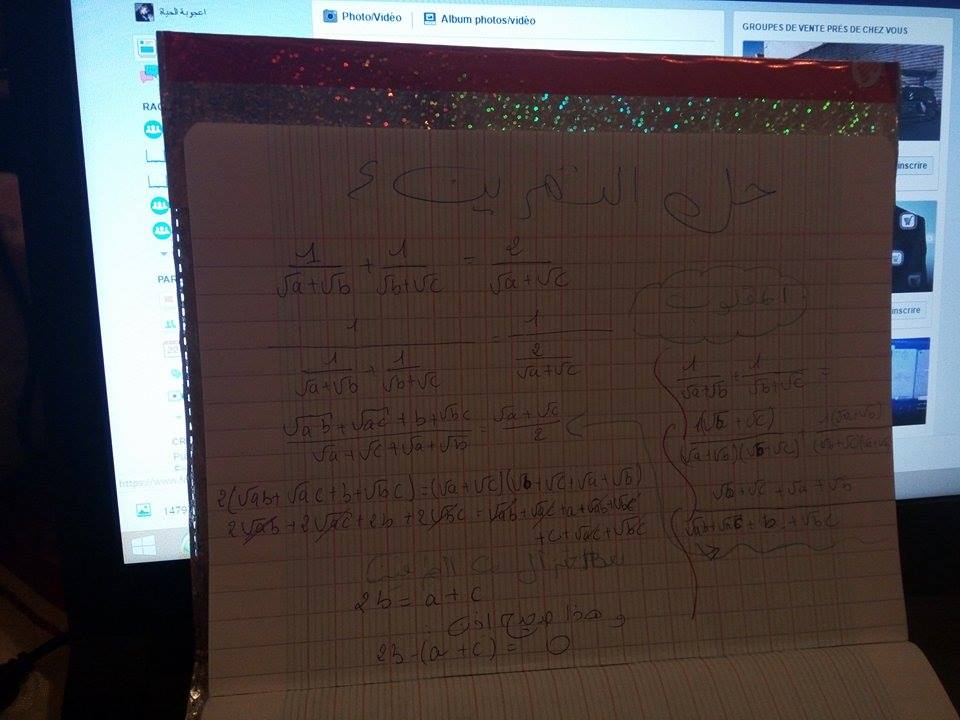 اعجوبة الحياة
Photo/Vidéo
Album photos/vidéo
GROUPES DE VENTE PRÈS DE CHEZ VOUS
inscrire
inscrire
حل التمرين
1/(√a+√b) + 1/(√b+√c) = 2/(√a+√c)
1/(1/(√a+√b) + 1/(√b+√c)) = 1/(2/(√a+√c))
(√ab + √ac + b + √bc)/(√a + √c + √a + √b) = (√a + √c)/2
2(√ab + √ac + b + √bc) = (√a + √c)(√b + √c + √a + √b)
2√ab + 2√ac + 2b + 2√bc = √ab + √ac + a + √ab + √bc
+ c + √ac + √bc
2b = a + c
و هذا صحيح اذن
2b - (a + c) = 0
المقلوب
1/(√a+√b) + 1/(√b+√c) =
1(√b + √c)/(√a+√b)(√b+√c) + 1(√a+√b)/(√b+√c)(√a+√b)
(√b + √c + √a + √b)/(√ab + √ac + b + √bc)